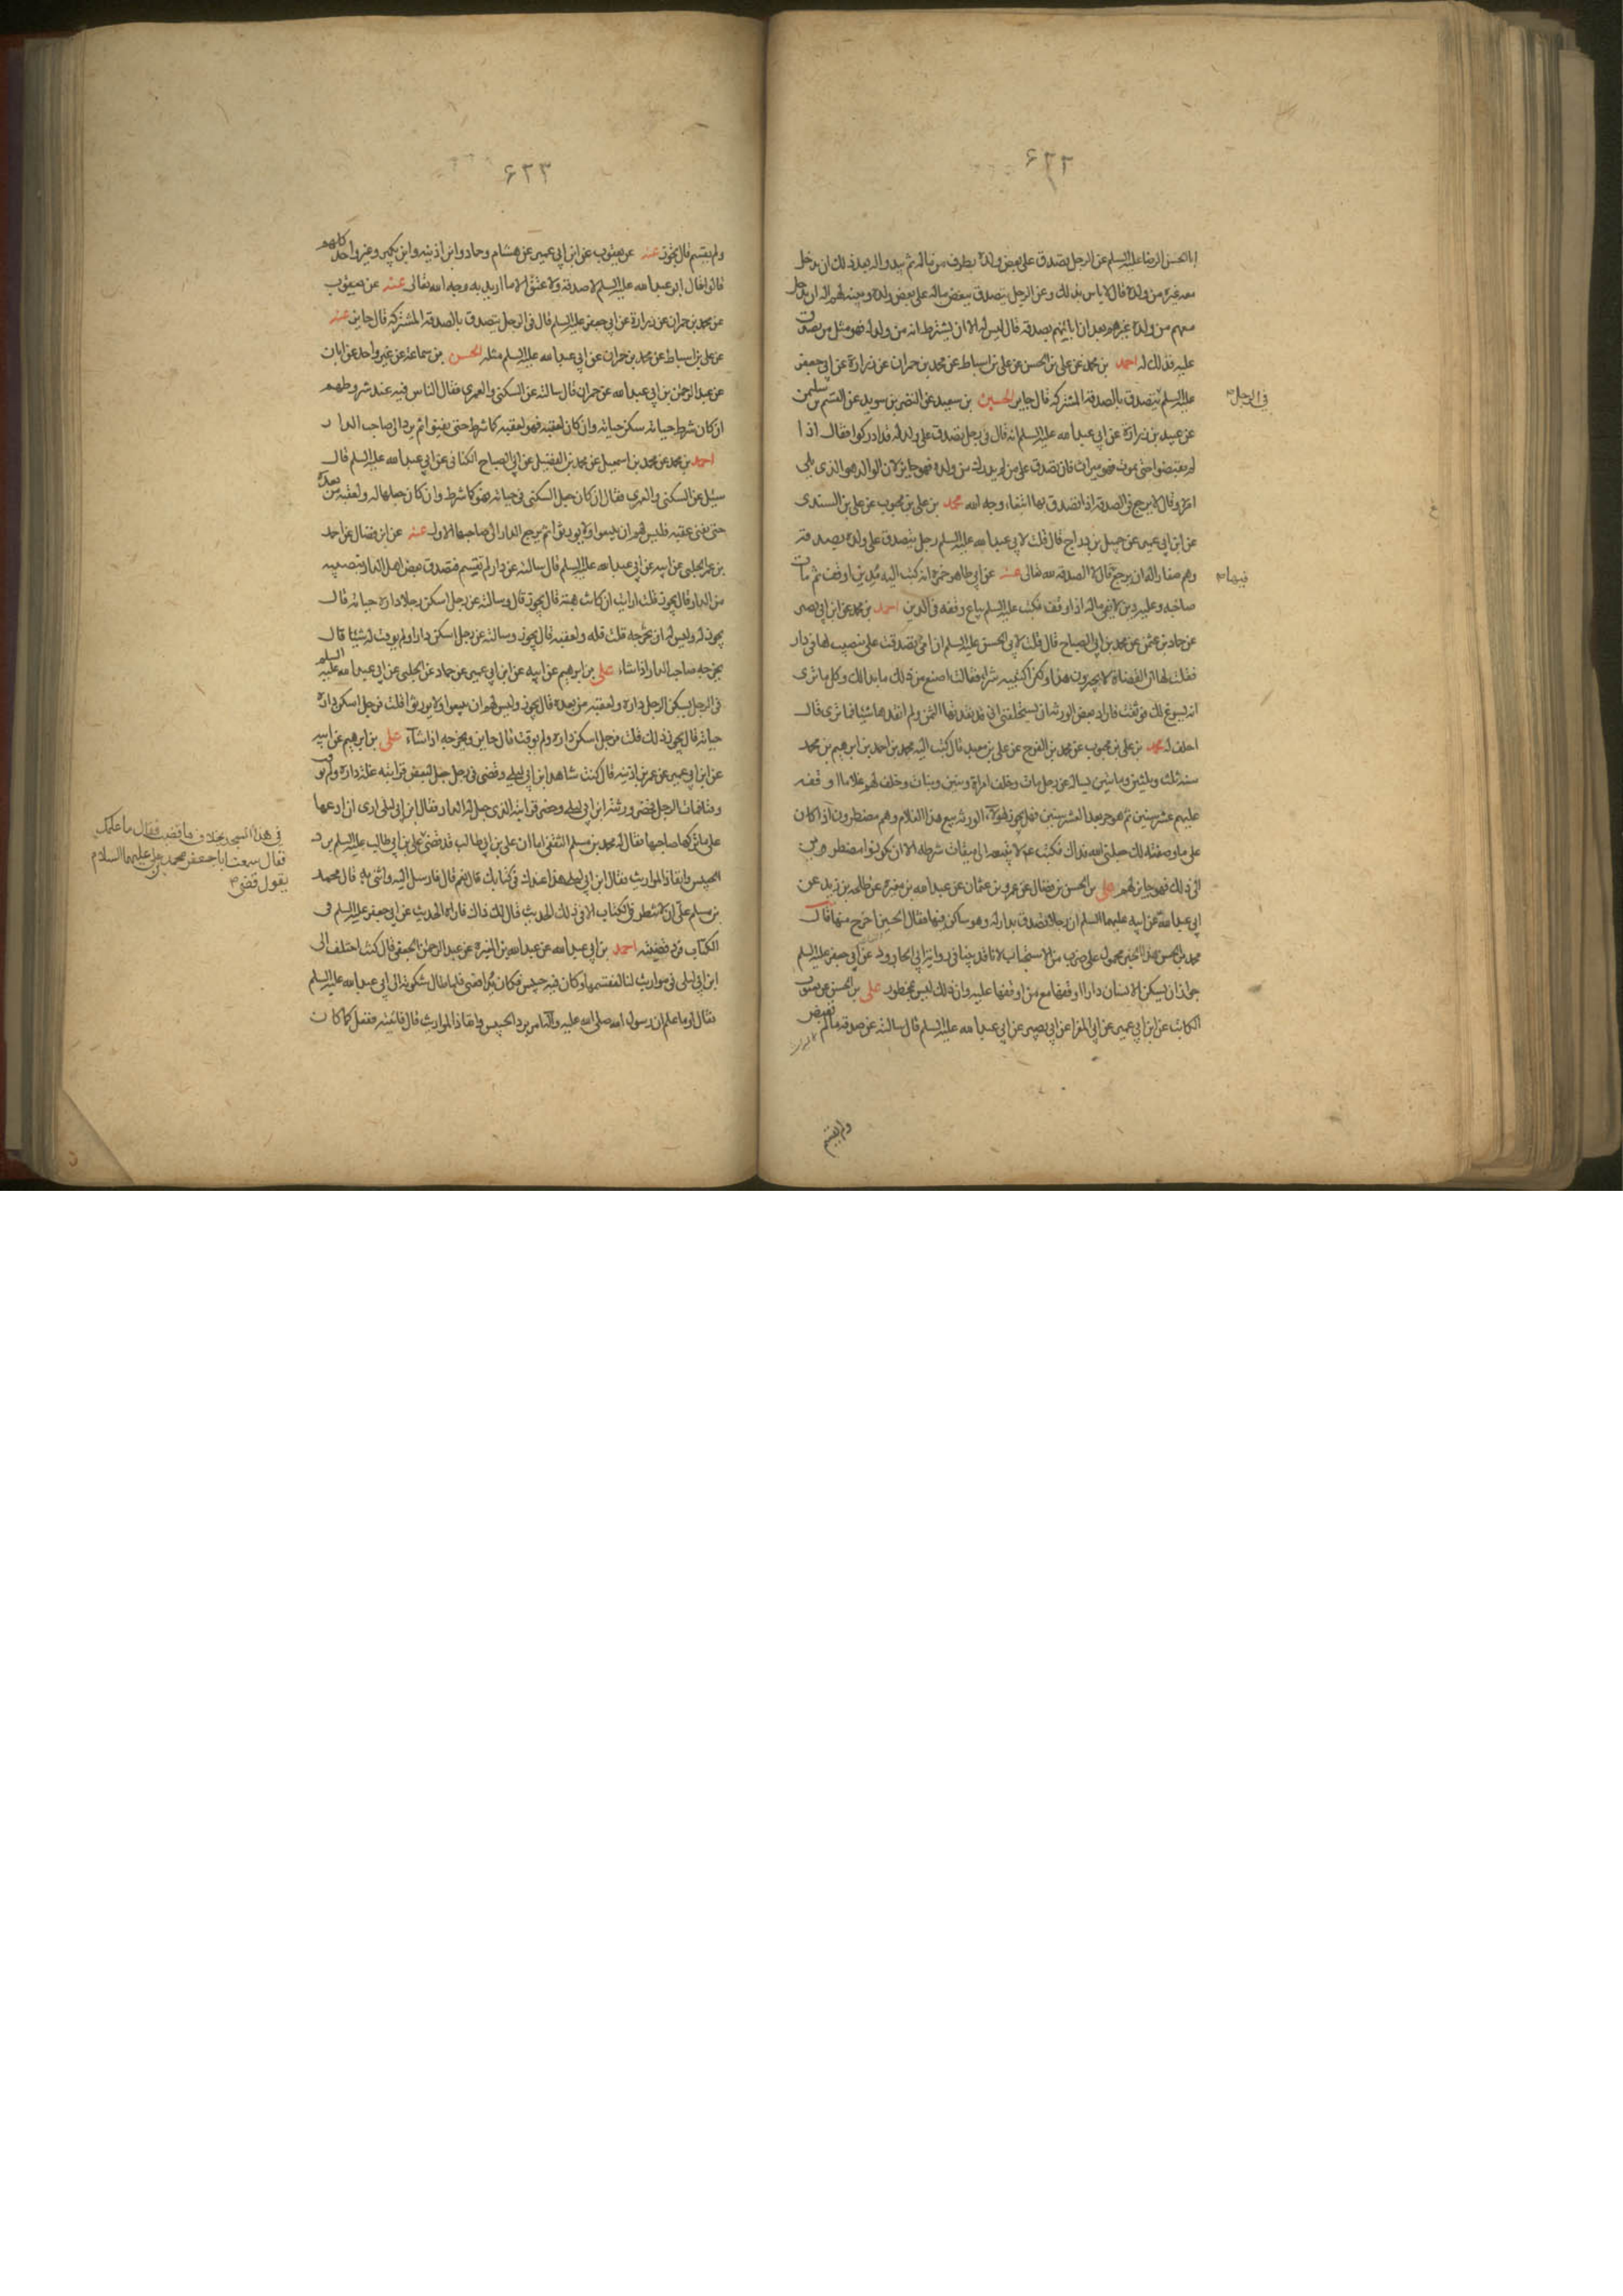 ۶۲۲
ابا الحسن الرضا عليه السلم عن الرجل يتصدق على بعض ولده بطرف من ماله ثم يبدو له بعد ذلك ان يدخل
معه غيره من ولده قال لا باس بذلك وعن الرجل يتصدق ببعض ماله على بعض ولده ويبينه لهم اله ان يدخل
معهم من ولده غيرهم بعد ان ابانهم بصدقة قال ليس له الا ان يشترط انه من ولد له فهو مثل من تصدق
عليه فذلك له احمد بن محمد عن على بن الحسن عن على بن اسباط عن محمد بن حمران عن زرارة عن ابى جعفر
فى الرجل
عليه السلم يتصدق بالصدقة المشتركه قال جايز الحسين بن سعيد عن النضر بن سويد عن القسم بن سليمن
عن عبيد بن زرارة عن ابى عبد الله عليه السلم انه قال فى رجل تصدق على ولد له قد ادركوا فقال اذا
لم يقبضوا حتى يموت فهو ميراث فان تصدق على من لم يدرك من ولده فهو جايز لان الوالد هو الذى يلى
امره وقال لا يرجع فى الصدقة اذا تصدق بها ابتغاء وجه الله محمد بن على بن محبوب عن على بن السندى
عن ابن ابى عمير عن جميل بن دراج قال قلت لابى عبد الله عليه السلم رجل يتصدق على ولده بصدقة
وهم صغار اله ان يرجع قال لا الصدقة لله تعالى عنه عن ابى طاهر حمزه انه كتب اليه مدين اوقف ثم مات
فيها
صاحبه وعليه دين لا يفى ماله اذا وقف فكتب عليه السلم يباع وقفه فى الدين احمد بن محمد عن ابن ابى نصر
عن حماد بن عثمن عن محمد بن ابى الصباح قال قلت لابى الحسن عليه السلم ان امى تصدقت على بنصيب لها فى دار
فقلت لها ان القضاة لا يجيزون هذا ولكن اكتبيه شراء فقالت اصنع من ذلك ما بدا لك وكل ما ترى
انه يسوغ لك فوثقت فاراد بعض الورثه ان يستحلفنى انى قد نقدتها الثمن ولم انقدها شيئا فما ترى قال
احلف له محمد بن على بن محبوب عن محمد بن الفرج عن على بن معبد قال كتب اليه محمد بن احمد بن ابرهيم بن محمد
سنة ثلث وثلثين وماتين يساله عن رجل مات وخلف امراة وبنين وبنات وخلف لهم غلاما اوقفه
عليهم عشر سنين ثم هو حر بعد العشر سنين فهل يجوز لهولاء الورثه بيع هذا الغلام وهم مضطرون اذا كان
على ما وصفته لك جعلنى الله فداك فكتب ع لا يبيعه الى ميقات شرطه الا ان يكونوا مضطرين
الى ذلك فهو جايز لهم على بن الحسن بن فضال عن عمرو بن عثمان عن عبد الله بن مغيره عن طلحه بن زيد عن
ابى عبد الله عن ابيه عليهما السلم ان رجلا تصدق بدار له وهو ساكن فيها فقال الحين اخرج منها قال
محمد بن الحسن هذا الخبر محمول على ضرب من الاستحباب لانا قد بينا فى رواية ابى الجارود عن ابى جعفر عليه السلم
جواز ان يسكن الانسان دارا اوقفها مع من اوقفها عليه وان ذلك ليس بمحظور على بن الحسن عن يعقوب
الكاتب عن ابن ابى عمير عن ابى المغرا عن ابى بصير عن ابى عبد الله عليه السلم قال سالته عن صدقة ما لم تقبض
ولم يقسم
۶۲۳
ولم يقسم قال يجوز عنه عن يعقوب عن ابن ابى عمير عن هشام وحماد وابن اذينه وابن بكير وغير واحد كلهم
قالوا قال ابو عبد الله عليه السلم لا صدقة ولا عتق الا ما اريد به وجه الله تعالى عنه عن يعقوب
عن محمد بن حمران عن زرارة عن ابى جعفر عليه السلم قال فى الرجل يتصدق بالصدقة المشتركه قال جايز عنه
عن على بن اسباط عن محمد بن حمران عن ابى عبد الله عليه السلم مثله الحسن بن سماعة عن غير واحد عن ابان
عن عبد الرحمن بن ابى عبد الله عن حمران قال سالته عن السكنى والعمرى فقال الناس فيه عند شروطهم
ان كان شرط حياته سكن حياته وان كان لعقبه فهو لعقبه كما شرط حتى يفنوا ثم يرد الى صاحب الدار
احمد بن محمد عن محمد بن اسمعيل عن محمد بن الفضيل عن ابى الصباح الكنانى عن ابى عبد الله عليه السلم قال
سئل عن السكنى والعمرى فقال ان كان جعل السكنى فى حياته فهو كما شرط وان كان جعلها له ولعقبه من بعده
حتى يفنى عقبه فليس لهم ان يبيعوا ولا يورثوا ثم يرجع الدار الى صاحبها الاول عنه عن ابن فضال عن احمد
بن عمر الحلبى عن ابيه عن ابى عبد الله عليه السلم قال سالته عن دار لم تقسم فتصدق بعض اهل الدار بنصيبه
من الدار قال يجوز قلت ارايت ان كانت هبة قال يجوز قال وسالته عن رجل اسكن رجلا داره حياته قال
يجوز له وليس له ان يخرجه قلت فله ولعقبه قال يجوز وسالته عن رجل اسكن دارا ولم يوقت له شيئا قال
يخرجه صاحب الدار اذا شاء على بن ابرهيم عن ابيه عن ابن ابى عمير عن حماد عن الحلبى عن ابى عبد الله عليه السلم
فى الرجل يسكن الرجل داره ولعقبه من بعده قال يجوز وليس لهم ان يبيعوا ولا يورثوا قلت فرجل اسكن داره
حياته قال يجوز ذلك قلت فرجل اسكن داره ولم يوقت قال جايز ويخرجه اذا شاء على بن ابرهيم عن ابيه
عن ابن ابى عمير عن عمر بن اذينه قال كنت شاهد ابن ابى ليلى وقضى فى رجل جعل لبعض قرابته غلة داره ولم يوقت
وقتا فمات الرجل فحضر ورثته ابن ابى ليلى وحضر قرابته الذى جعل له الدار فقال ابن ابى ليلى ارى ان ادعها
على ما تركها صاحبها فقال له محمد بن مسلم الثقفى اما ان على بن ابى طالب قد قضى
فى هذا المسجد بخلاف ما قضيت فقال ما علمك
فقال سمعت ابا جعفر محمد بن على عليهما السلام
يقول قضى
على بن ابى طالب عليه السلم برد
الحبيس وانفاذ المواريث فقال ابن ابى ليلى هذا عندك فى كتابك قال نعم قال فارسل اليه وائتنى به قال محمد
بن مسلم على ان لا تنظر فى الكتاب الا فى ذلك الحديث قال لك ذاك فاراه الحديث عن ابى جعفر عليه السلم فى
الكتاب فرد قضيته احمد بن ابى عبد الله عن عبد الله بن المغيرة عن عبد الرحمن الجعفى قال كنت اختلف الى
ابن ابى ليلى فى مواريث لنا لنقسمها وكان فيه حبيس فكان يدافعنى فلما طال شكوته الى ابى عبد الله عليه السلم
فقال او ما علم ان رسول الله صلى الله عليه وآله امر برد الحبيس وانفاذ المواريث قال فاتيته ففعل كما كان